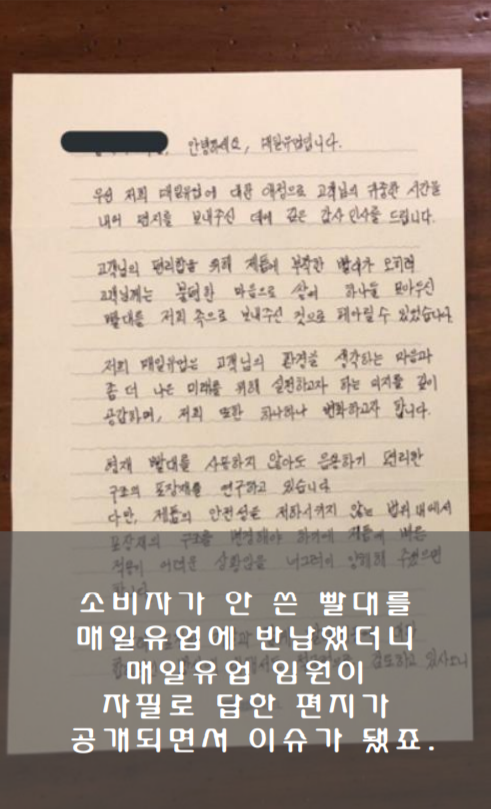 안녕하세요, 매일유업입니다.
우선 저희 매일유업에 대한 애정으로 고객님의 귀중한 시간을
내어 편지를 보내주신 데에 깊은 감사 인사를 드립니다.
고객님의 편리함을 위해 제품에 부착한 빨대가 오히려
고객님께는 불편한 마음으로 쌓여 하나둘 모아두신
빨대를 저희 쪽으로 보내주신 것으로 헤아릴 수 있었습니다
저희 매일유업은 고객님의 환경을 생각하는 마음과
좀 더 나은 미래를 위해 실천하고자 하는 의지를 깊이
공감하며, 저희 또한 하나하나 변화하고자 합니다.
현재 빨대를 사용하지 않아도 음용하기 편리한
구조의 포장재를 연구하고 있습니다
다만, 제품의 안전성을 저하시키지 않는 범위 내에서
포장재의 구조를 변경해야 하기에 제품에 빠른
적용이 어려운 상황임을 너그러이 양해해 주셨으면
합니다
검토하고 있사오니
소비자가 안 쓴 빨대를
매일유업에 반납했더니
매일유업 임원이
자필로 답한 편지가
공개되면서 이슈가 됐죠.